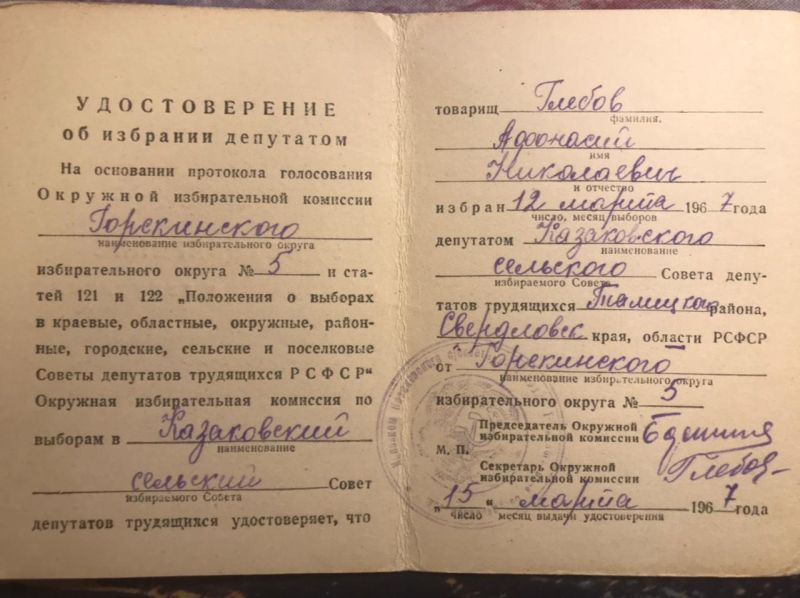 УДОСТОВЕРЕНИЕ
об избрании депутатом
На основании протокола голосования
Окружной избирательной комиссии
Горскинского
наименование избирательного округа
избирательного округа № 5 и ста-
тей 121 и 122 „Положения о выборах
в краевые, областные, окружные, район-
ные, городские, сельские и поселковые
Советы депутатов трудящихся РСФСР“
Окружная избирательная комиссия по
выборам в Казаковский
наименование
сельский Совет
избираемого Совета
депутатов трудящихся удостоверяет, что
товарищ Глебов
фамилия,
Афонасий
имя
Николаевич
и отчество
избран 12 марта 1967 года
число, месяц выборов
депутатом Казаковского
наименование
сельского Совета депу-
избираемого Совета
татов трудящихся Талицкого района,
Свердловск края, области РСФСР
от Горскинского
наименование избирательного округа
избирательного округа № 5
Председатель Окружной
избирательной комиссии
М. П.
Секретарь Окружной
избирательной комиссии Глебов
„15“ марта 1967 года
число месяц выдачи удостоверения